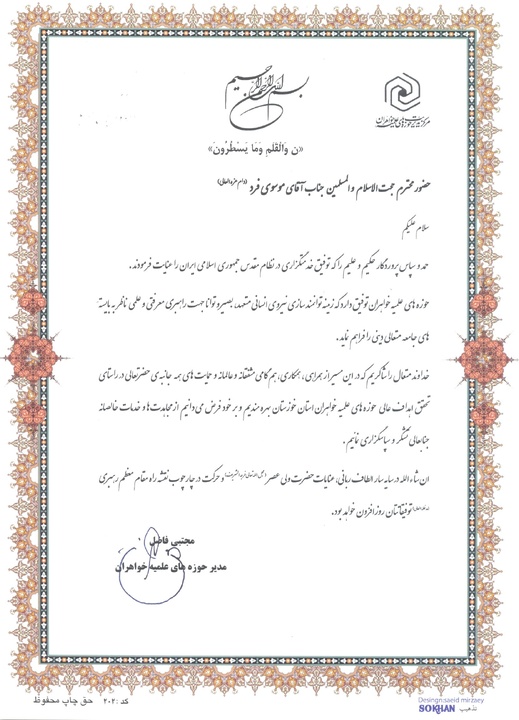 بسم الله الرحمن الرحیم
مرکز مدیریت حوزه‌های علمیه خواهران
«ن وَالْقَلَمِ وَمَا يَسْطُرُونَ»
حضور محترم حجت الاسلام و المسلمین جناب آقای موسوی فرد (دام عزه العالی)
سلام علیکم
حمد و سپاس پروردگار حکیم و علیم را که توفیق خدمتگزاری در نظام مقدس جمهوری اسلامی ایران را عنایت فرمودند.
حوزه های علمیه خواهران توفیق دارد که زمینه توانمندسازی نیروی انسانی متعهد، بصیر و توانا جهت راهبری معرفتی و علمی ناظر به بایسته
های جامعه متعالی دینی را فراهم نماید.
خداوند متعال را شاکریم که در این مسیر از همراهی، همکاری، هم گامی مشفقانه و عالمانه و حمایت های همه جانبه ی حضرتعالی در راستای
تحقق اهداف عالی حوزه های علمیه خواهران استان خوزستان بهره مندیم و بر خود فرض می دانیم از مجاهدت ها و خدمات خالصانه
جنابعالی تشکر و سپاسگزاری نمائیم.
ان شاء الله در سایه سار الطاف ربانی، عنایات حضرت ولی عصر و حرکت در چارچوب نقشه راه مقام معظم رهبری
توفیقاتتان روزافزون خواهد بود.
مجتبی فاضل
مدیر حوزه های علمیه خواهران
کد: ۲۰۲ حق چاپ محفوظ
Design:saeid mirzaey
تذهیب SOKHAN